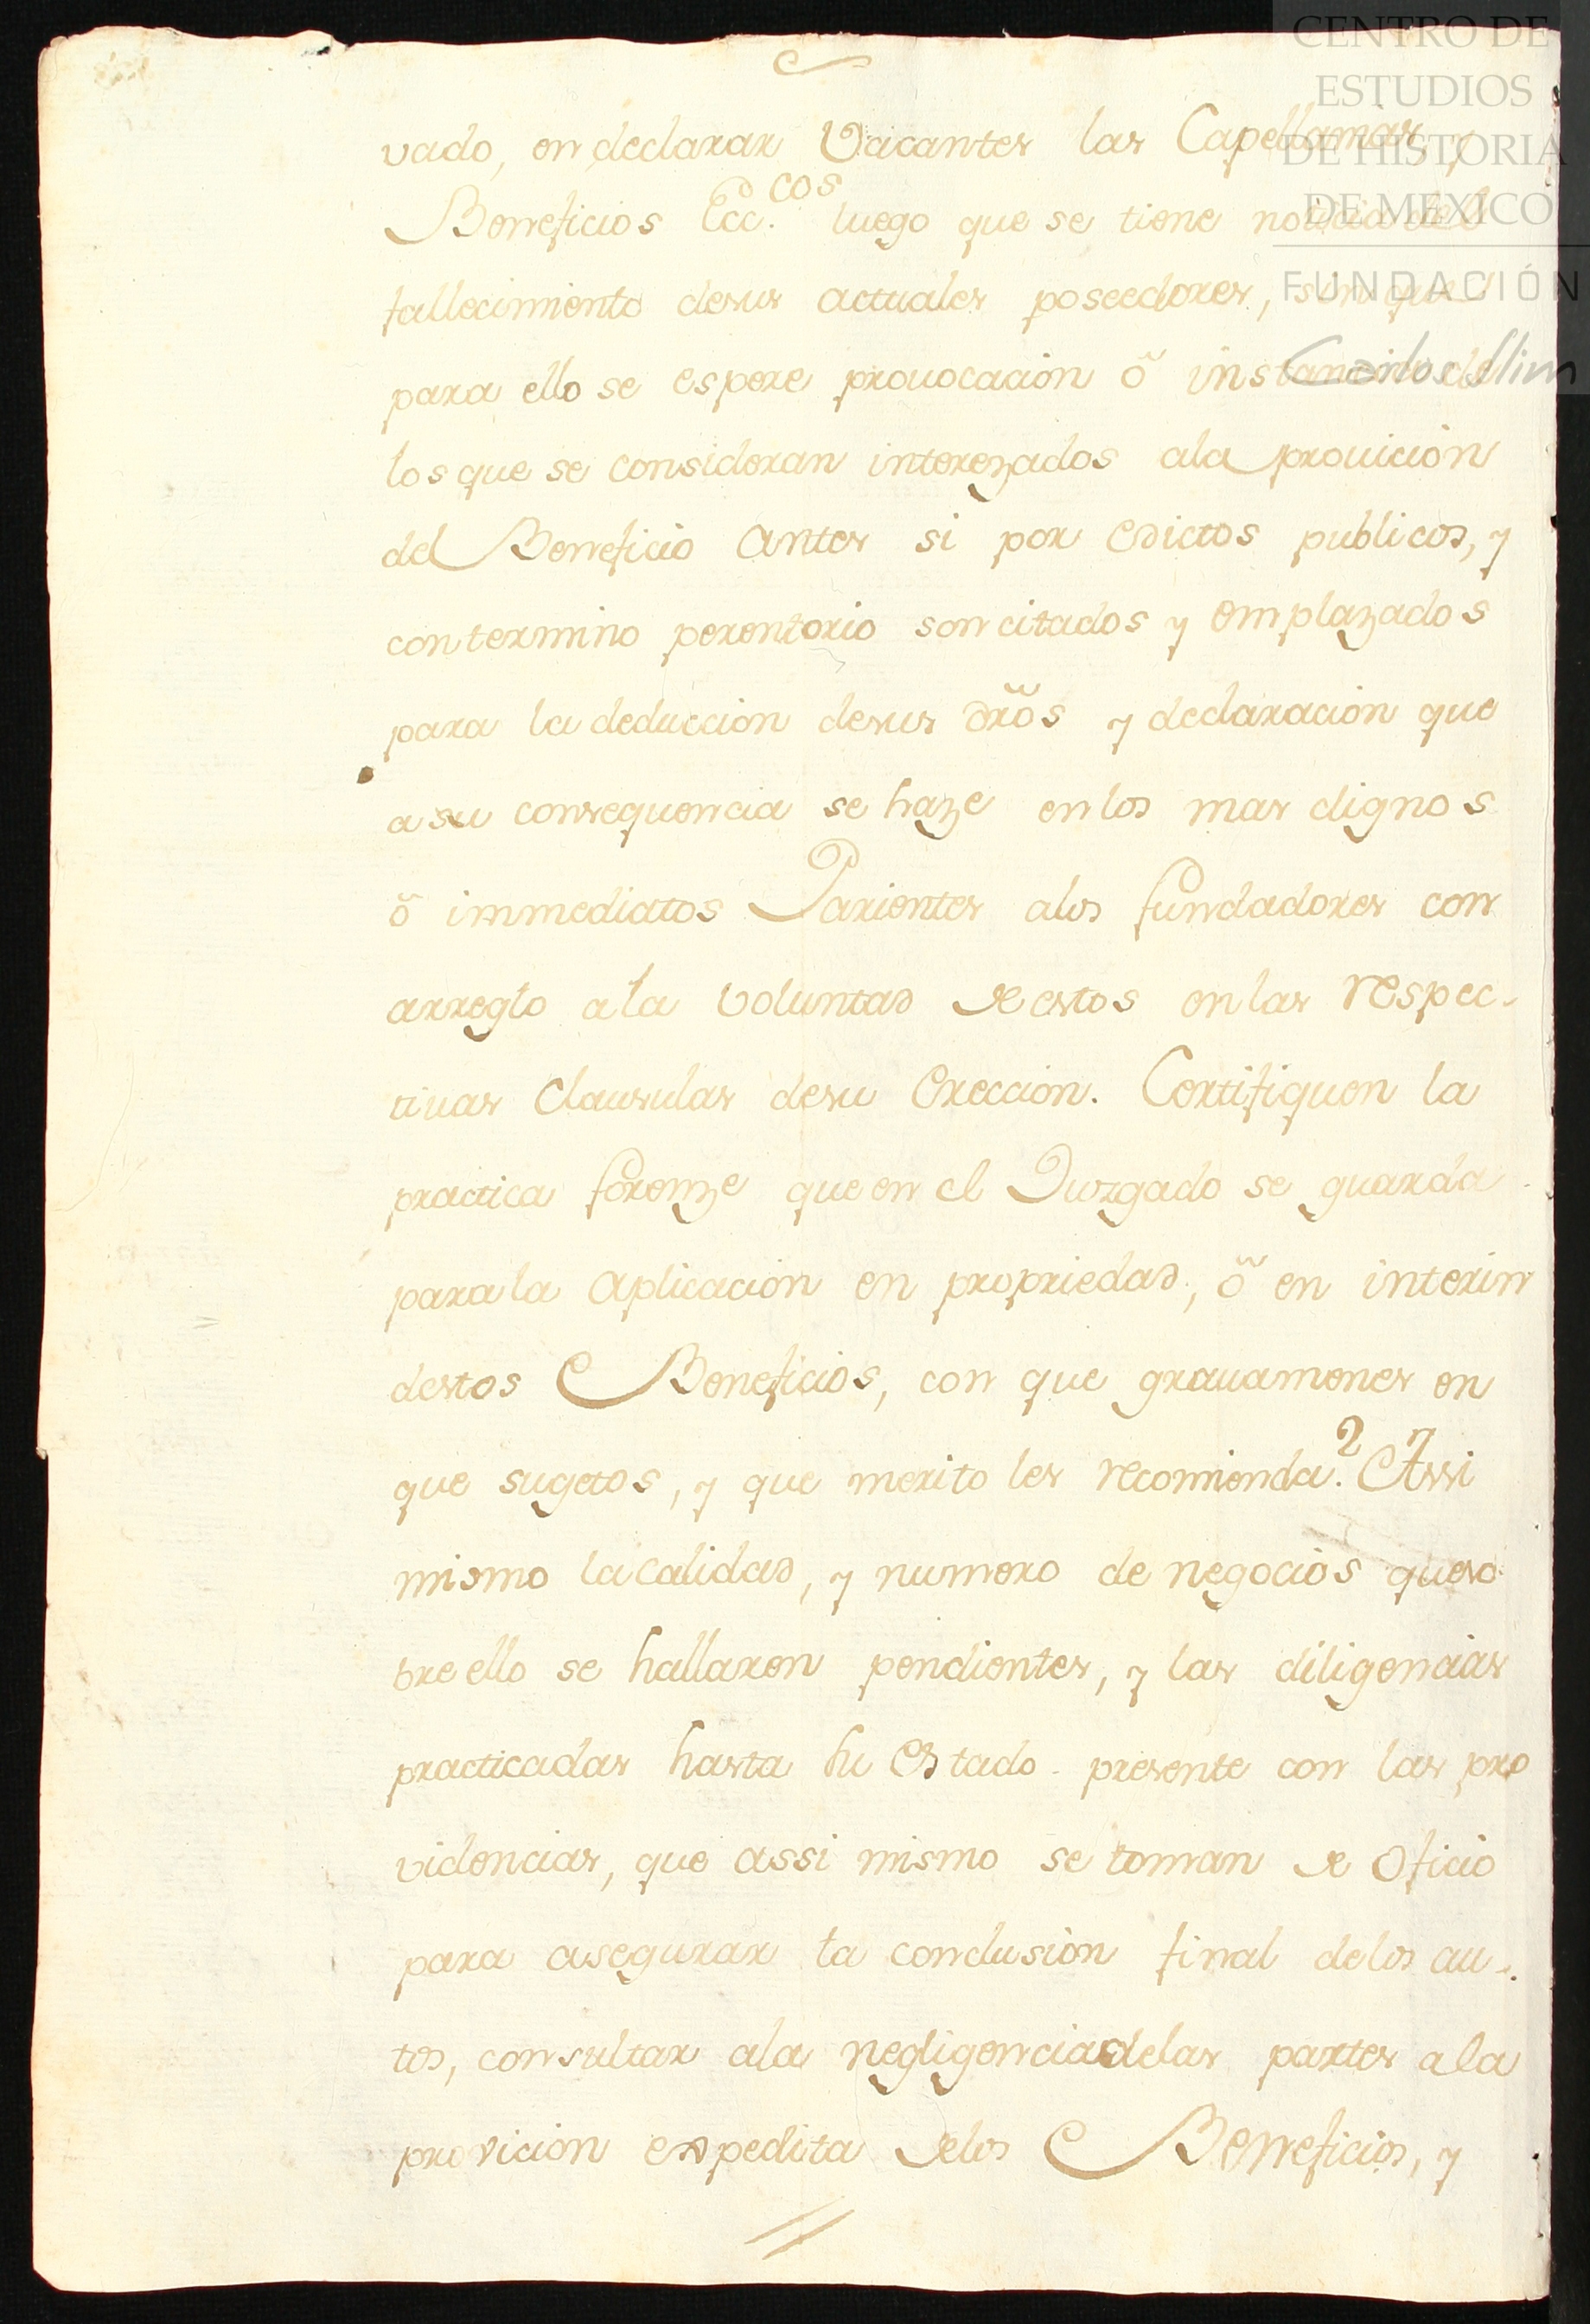 CENTRO DE
ESTUDIOS
DE HISTORIA
DE MEXICO
FUNDACIÓN
Carlos Slim
vado, en declarar Vacantes las Capellanias, y
Beneficios Ecc.cos luego que se tiene noticia del
fallecimiento desus actuales poseedores, sin que
para ello se espere prouocacion ó instancia de
los que se consideran interezados ala prouicion
del Beneficio Antes si por edictos publicos, y
con termino perentorio son citados y emplazados
para la deduccion desus dr̃os y declaracion que
a su consequencia se haze en los mas dignos
ó immediatos Parientes alos fundadores con
arreglo ala Voluntad de estos en las respec-
tiuas Clausulas desu Ereccion. Certifiquen la
practica forenze que en el Juzgado se guarda
para la Aplicacion en propriedad, ó en interin
destos Beneficios, con que grauamenes en
que sugetos, y que merito les recomienda? Assi
mismo la calidad, y numero de negocios queso
bre ello se hallaren pendientes, y las diligencias
practicadas hasta su Estado presente con las pro
videncias, que assi mismo se toman de Oficio
para asegurar la conclusion final delos au-
tos, consultar ala negligencia delas partes ala
provicion expedita delos Beneficios, y